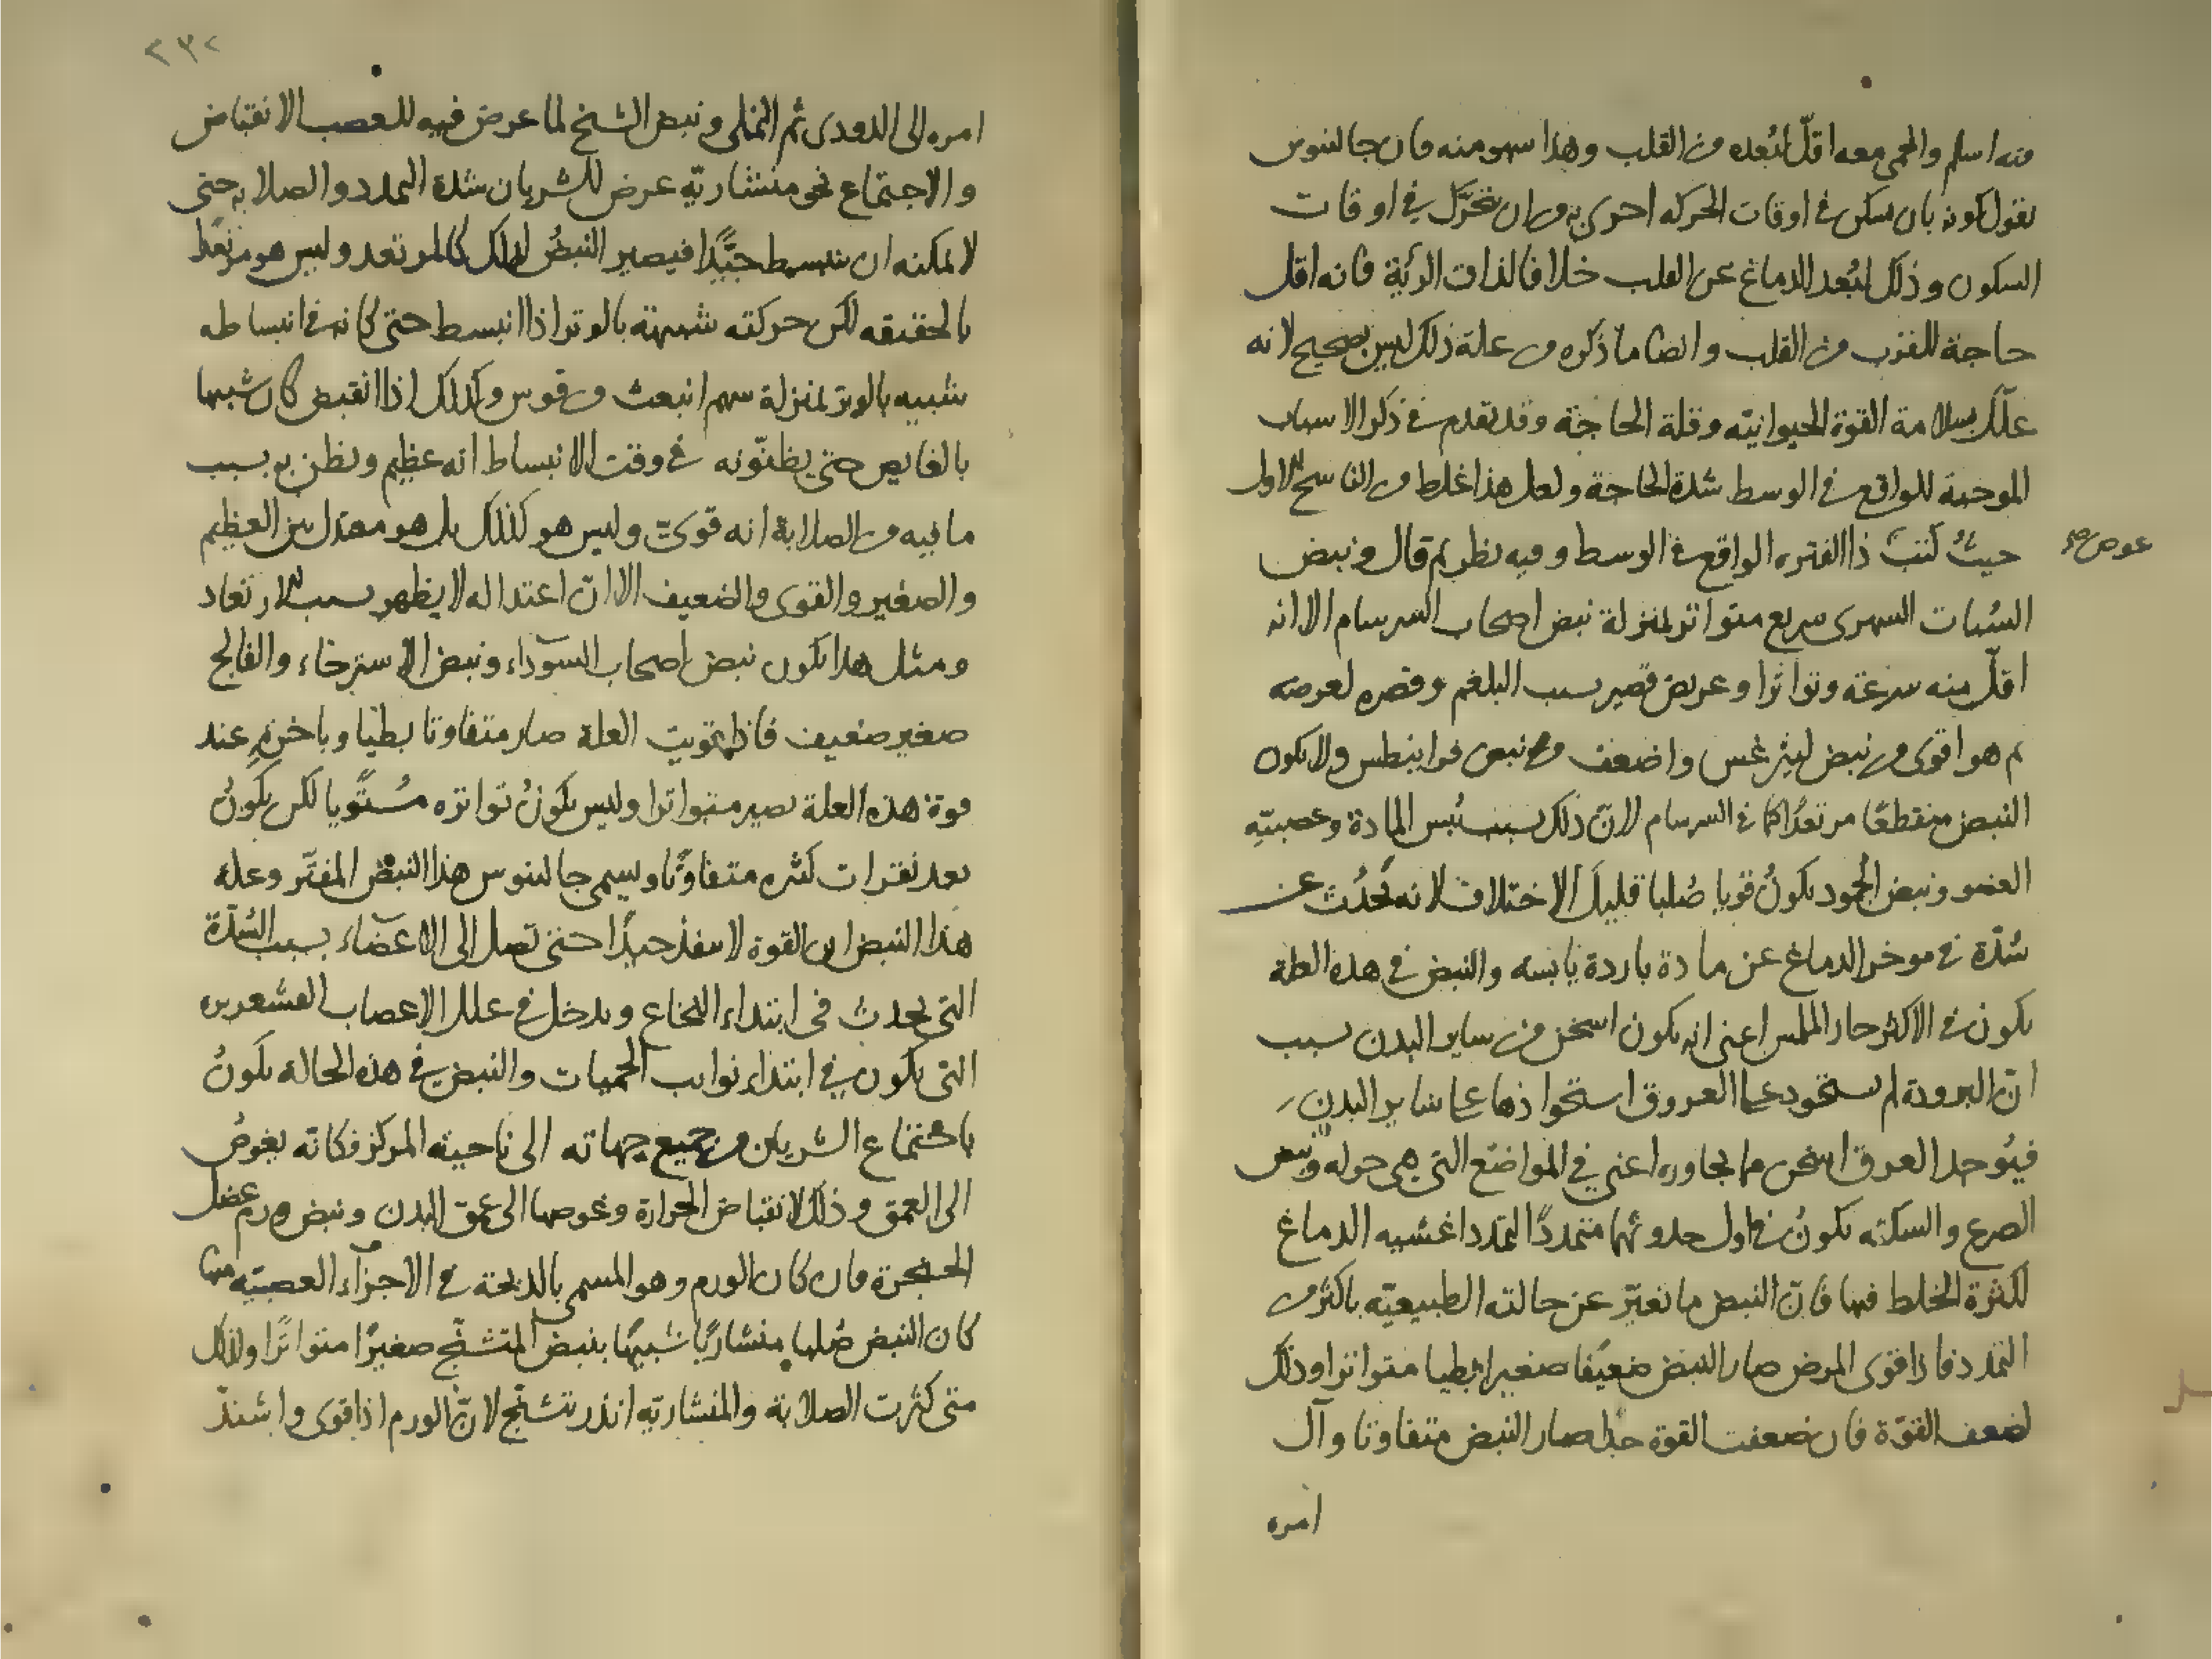 منه اسلم والحمى معه اقلّ لبُعده من القلب وهذا سهو منه فان جالينوس
يقول كونه بان يسكن في اوقات الحركه احرى به من ان يتحرّك في اوقات
السكون وذلك لبُعد الدماغ عن القلب خلافا لذات الرئة فانه اقل
حاجة للقرب من القلب وايضا ما ذكره من علة ذلك ليس بصحيح لانه
علّل بسلامة القوة الحيوانيّه وقلة الحاجة وقد تقدم في ذكر الاسباب
الموجبة للواقع في الوسط شدة الحاجة ولعل هذا غلط من الناسخ الاول
حيثُ كتبَ ذا الفتره الواقع في الوسط وفيه نظر ثم قال ونبض
عوض
السُبات السهرى سريع متواتر بمنزلة نبض اصحاب السرسام الا انه
اقلّ منه سرعة وتواترا وعريض قصير بسبب البلغم وقصره لعرضه
ثم هو اقوى من نبض ليثرغس واضعف من نبض فرانيطس ولا يكون
النبض منقطعًا مرتعدًا كما في السرسام لانّ ذلك بسبب يُبس المادة وعصبيّةِ
العضو ونبض الجُمود يكونُ قويا صُلبا قليلَ الاختلاف لانه يَحدُث عن
سُدّة في موخر الدماغ عن مادة باردة يابسه والنبض في هذه العلة
يكون في الاكثر حار الملمس اعنى انه يكون اسخن من ساير البدن بسبب
انّ البرودة لم تستحوذ على العروق استحواذها على ساير البدن
فيُوجد العرق اسخن مما يجاوره اعنى في المواضع التي هي حوله ونبض
الصرع والسكته يكونُ في اول حدوثهما متمددًا لتمدد اغشيه الدماغ
لكثرة الخلط فيها فانّ النبض ما تغيّر عن حالته الطبيعيّه باكثر من
التمدد فاذا قوى المرض صار النبض ضعيفًا صغيرا بطيا متواترا وذلك
لضعف القوّة فان ضعفت القوة جدا صار النبض متفاوتا وآل
امره
٢٣٢
امره الى الدودى ثم النملى ونبض الشيخ لما عرض فيه للعصب الانقباض
والاجتماع نحو منشاريّه عرض للشريان شدة التمدد والصلابة حتى
لا يمكنه ان ينبسط جيّدًا فيصير النبضُ لذلك كالمرتعد وليس هو مرتعدا
بالحقيقه لكن حركته شبيهة بالوتر اذا انبسط حتى كانه في انبساطه
شبيه بالوتر بمنزلة سهم انبعث من قوس وكذلك اذا انقبض كان شبيها
بالغايص حتى يظنّونه في وقت الانبساط انه عظيم ونظن به بسبب
ما فيه من الصلابة انه قوىّ وليس هو كذلك بل هو معتدل بين العظيم
والصغير والقوى والضعيف الا انّ اعتداله لا يظهر بسبب الارتعاد
ومثل هذا يكون نبض اصحاب السوداء ونبض الاسترخاء والفالج
صغير ضعيف فاذا قويت العلة صار متفاوتا بطيا وباخرةٍ عند
قوة هذه العلة يصير متواترا وليس يكونُ تواتره مُستويا لكن يكونُ
بعد نقرات كثيره متفاوتًا ويسمى جالينوس هذا النبض المفتّر وعلة
هذا النبض ان القوة لا تنفذ جيدًا حتى تصل الى الاعضاء بسبب السُدّة
التي تحدث فى ابتداء النخاع ويدخل في علل الاعصاب القشعريره
التى يكون في ابتداء نوايب الحميات والنبض في هذه الحالة يكونُ
باجتماع الشريان من جميع جهاته الى ناحية المركز فكانه يغوصُ
الى العمق وذلك لانقباض الحرارة وغوصها الى عمق البدن ونبض ورم عضل
الحنجرة فان كان الورم وهو المسمى بالذبحة في الاجزآء العصبيّه منها
كان النبض صُلبا منشاريًا شبيهًا بنبض المتشنّج صغيرًا متواترًا وكذلك
متى كثرت الصلابة والمنشاريّه انذر بتشنّج لانّ الورم اذا قوى واشتدّ